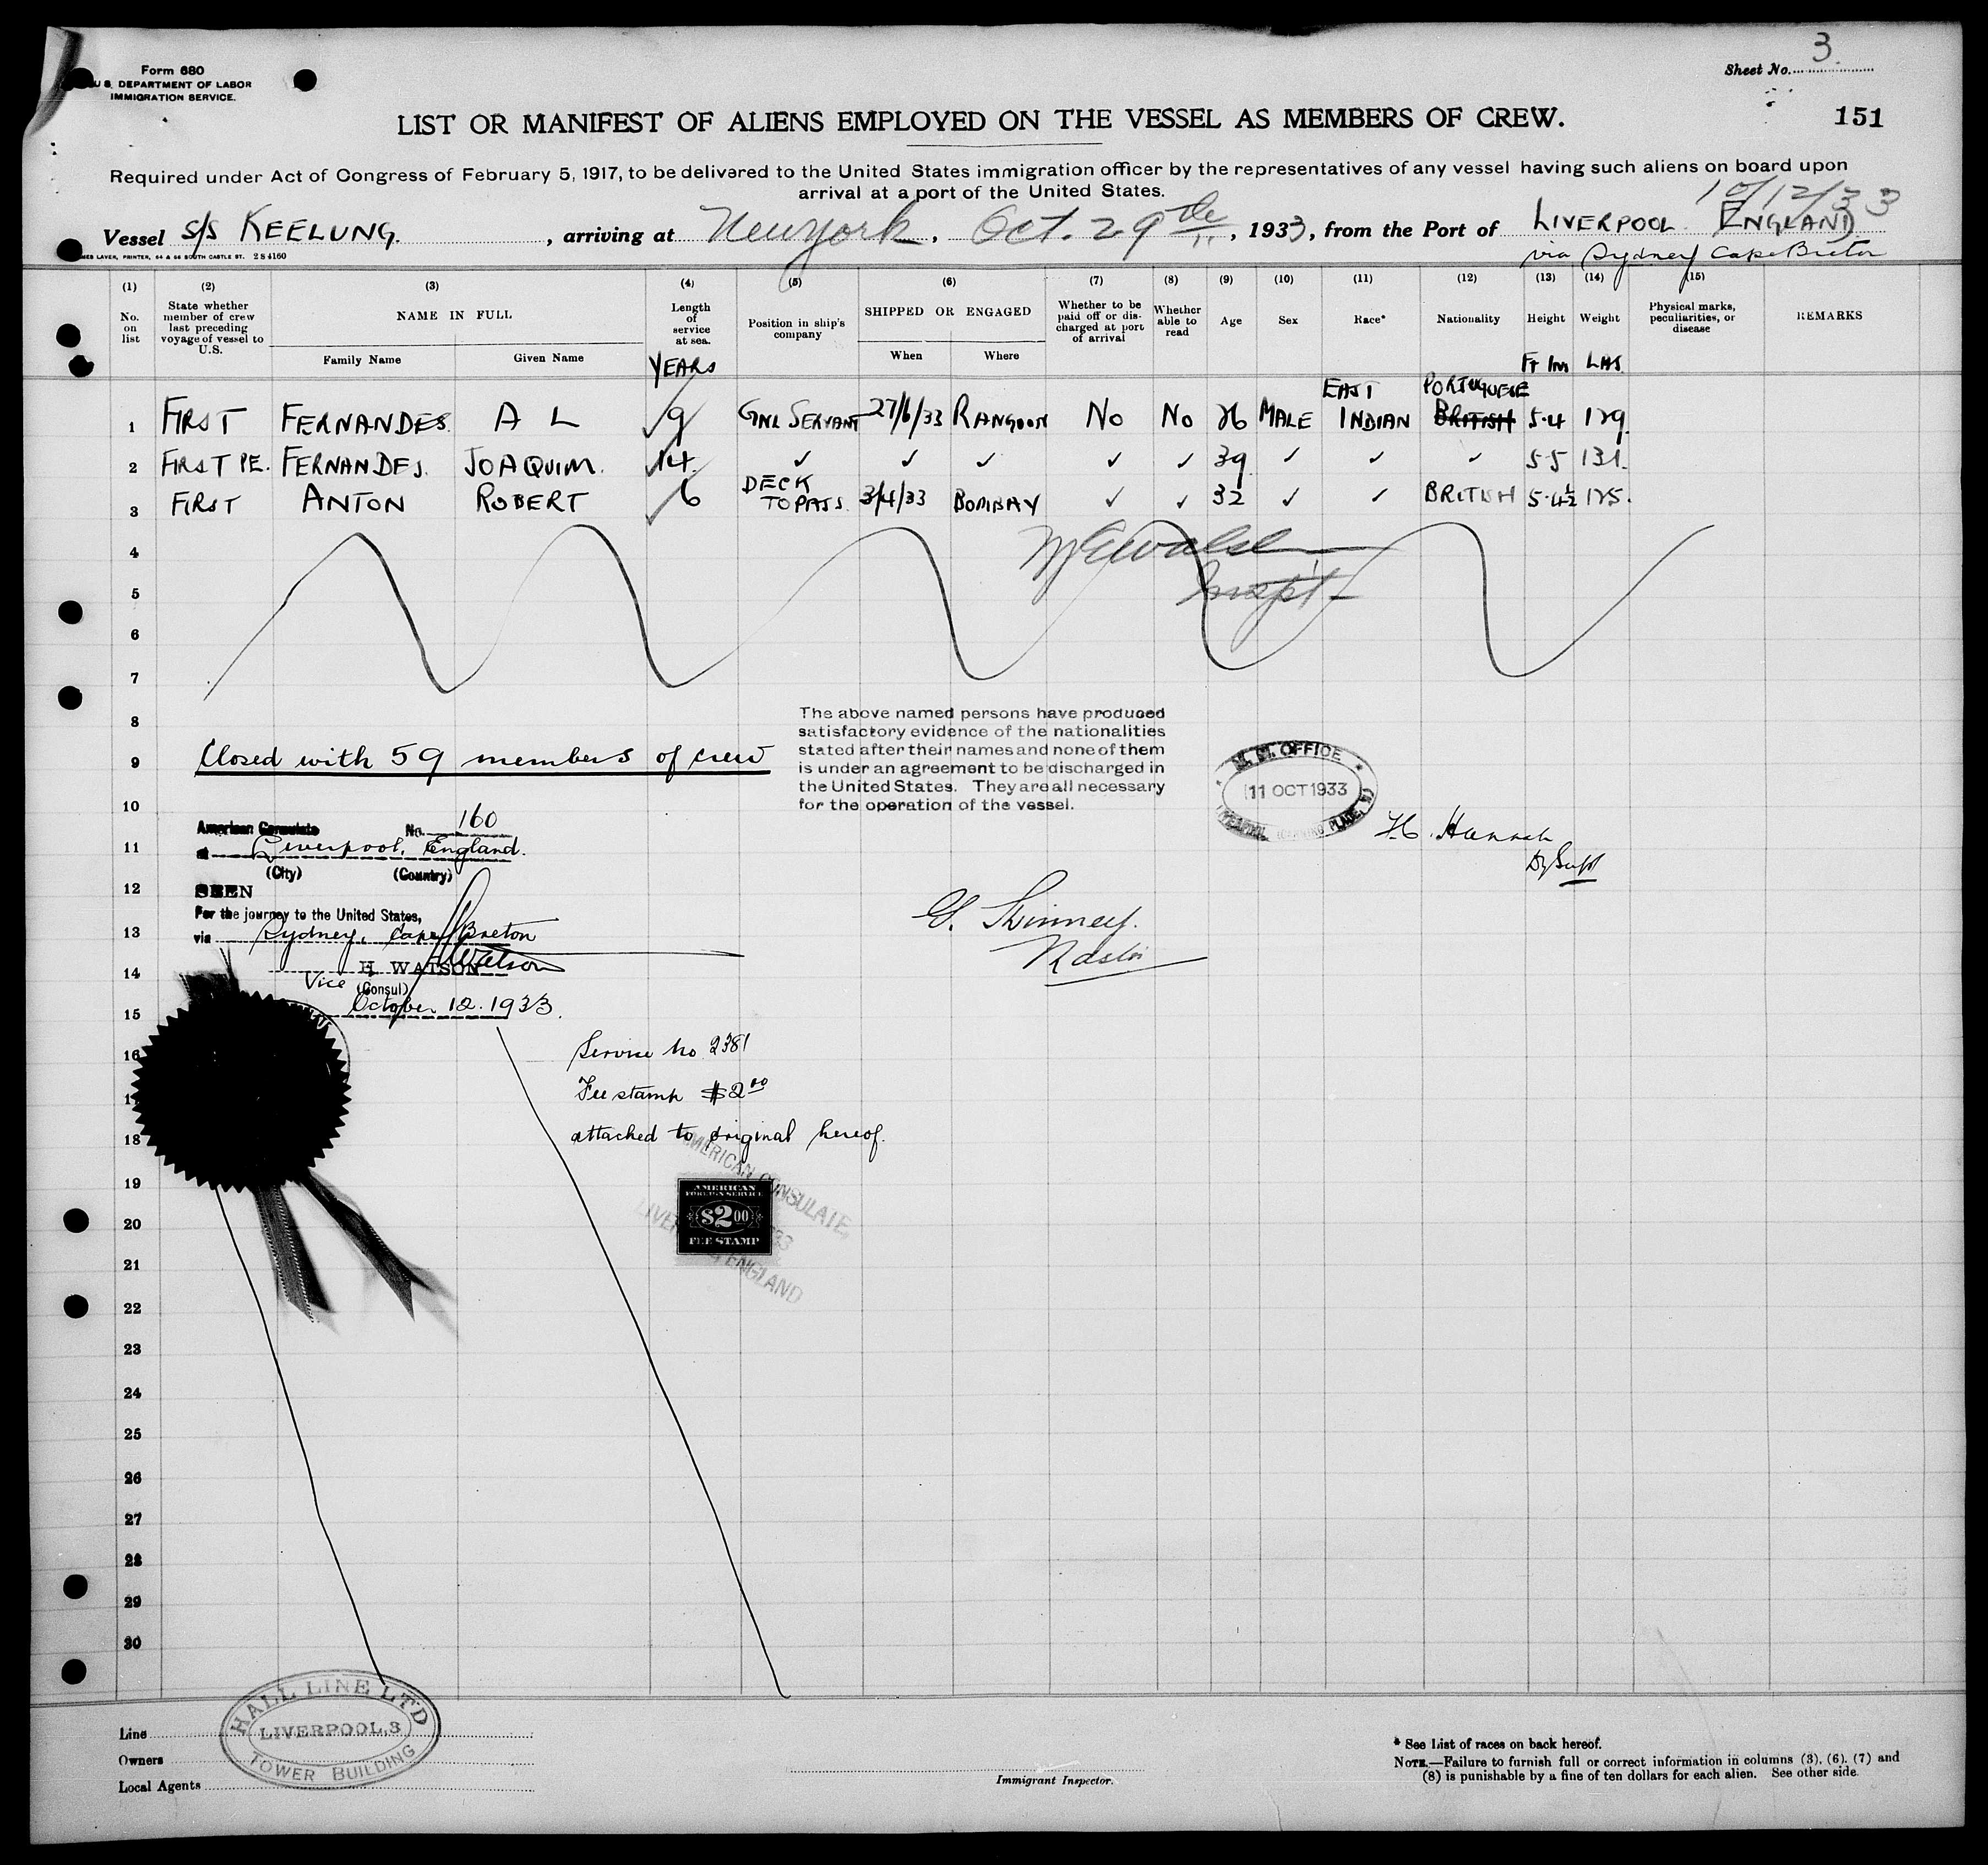 Form 680
U. S. DEPARTMENT OF LABOR
IMMIGRATION SERVICE.
Sheet No. 3
151
LIST OR MANIFEST OF ALIENS EMPLOYED ON THE VESSEL AS MEMBERS OF CREW.
Required under Act of Congress of February 5, 1917, to be delivered to the United States immigration officer by the representatives of any vessel having such aliens on board upon
arrival at a port of the United States.
10/12/33
Vessel S/S KEELUNG. , arriving at New York , Oct. 29th , 1933, from the Port of LIVERPOOL ENGLAND
via Sydney Cape Breton
LAVER, PRINTER, 54 & 56 SOUTH CASTLE ST. 2S4160
(1) (2) (3) (4) (5) (6) (7) (8) (9) (10) (11) (12) (13) (14) (15)
No. on list State whether member of crew last preceding voyage of vessel to U.S. NAME IN FULL Family Name Given Name Length of service at sea. YEARS Position in ship's company SHIPPED OR ENGAGED When Where Whether to be paid off or discharged at port of arrival Whether able to read Age Sex Race* Nationality Height Ft Ins Weight LBS Physical marks, peculiarities, or disease REMARKS
1 FIRST FERNANDES. A L 9 GNL SERVANT 27/6/33 RANGOON No No 26 MALE EAST INDIAN PORTUGUESE BRITISH 5.4 129
2 FIRST PE. FERNANDES. JOAQUIM. 14. ✓ ✓ ✓ ✓ ✓ 39 ✓ ✓ ✓ 5-5 131.
3 FIRST ANTON ROBERT 6 DECK TOPASS. 3/4/33 BOMBAY ✓ ✓ 32 ✓ ✓ BRITISH 5.4½ 125.
4
5
Inspt
6
7
8
The above named persons have produced
satisfactory evidence of the nationalities
stated after their names and none of them
is under an agreement to be discharged in
the United States. They are all necessary
for the operation of the vessel.
9 Closed with 59 members of crew
M. M. OFFICE
11 OCT 1933
10
American Consulate No. 160
11 at Liverpool, England.
(City) (Country)
H. Hannah
Dy Supt
12 SEEN
For the journey to the United States,
13 via Sydney, Cape Breton
G. Skinner.
Master
14 H. WATSON
Vice (Consul)
15 October 12. 1933.
16 Service No 2381
17 Fee stamp $2.00
18 attached to original hereof.
AMERICAN CONSULATE,
LIVERPOOL, ENGLAND
19
AMERICAN
FOREIGN SERVICE
$2.00
FEE STAMP
20
21
22
23
24
25
26
27
28
29
30
HALL LINE LTD
LIVERPOOL, 3
TOWER BUILDING
Line
Owners
Local Agents
Immigrant Inspector.
* See List of races on back hereof.
NOTE.—Failure to furnish full or correct information in columns (3), (6), (7) and
(8) is punishable by a fine of ten dollars for each alien. See other side.